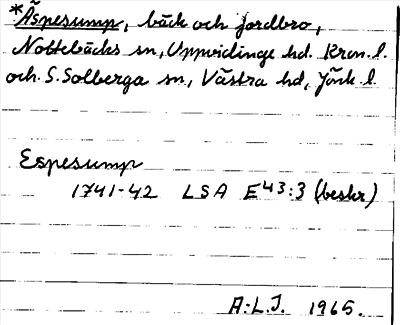 *Äspesump, bäck och jordbro,
Nottebäcks sn, Uppvidinge hd. Kron. l.
och S. Solberga sn, Västra hd, Jönk l.
Espesump
1741-42 LSA E43:3 (beskr)
A.L.J. 1965.